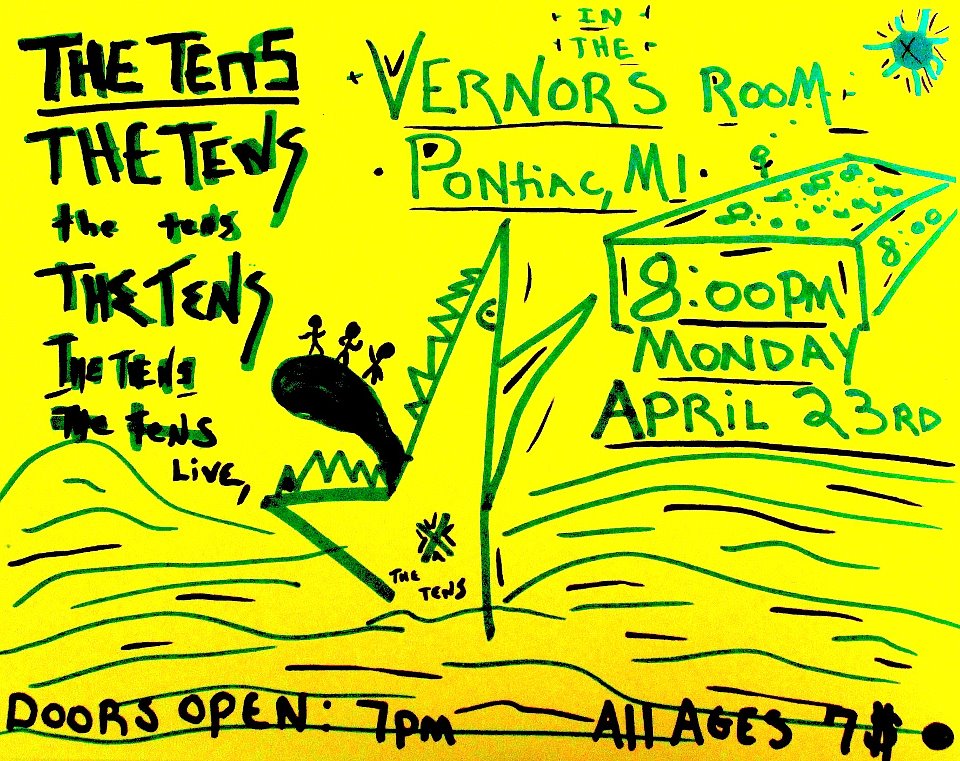 THE TENS
THE TENS
the tens
THE TENS
THE TENS
The tens
LIVE,
IN
THE
VERNORS ROOM
PONTIAC, MI
8:00PM
8:00
MONDAY
APRIL 23RD
THE
TENS
DOORS OPEN: 7PM
All AGES 7$